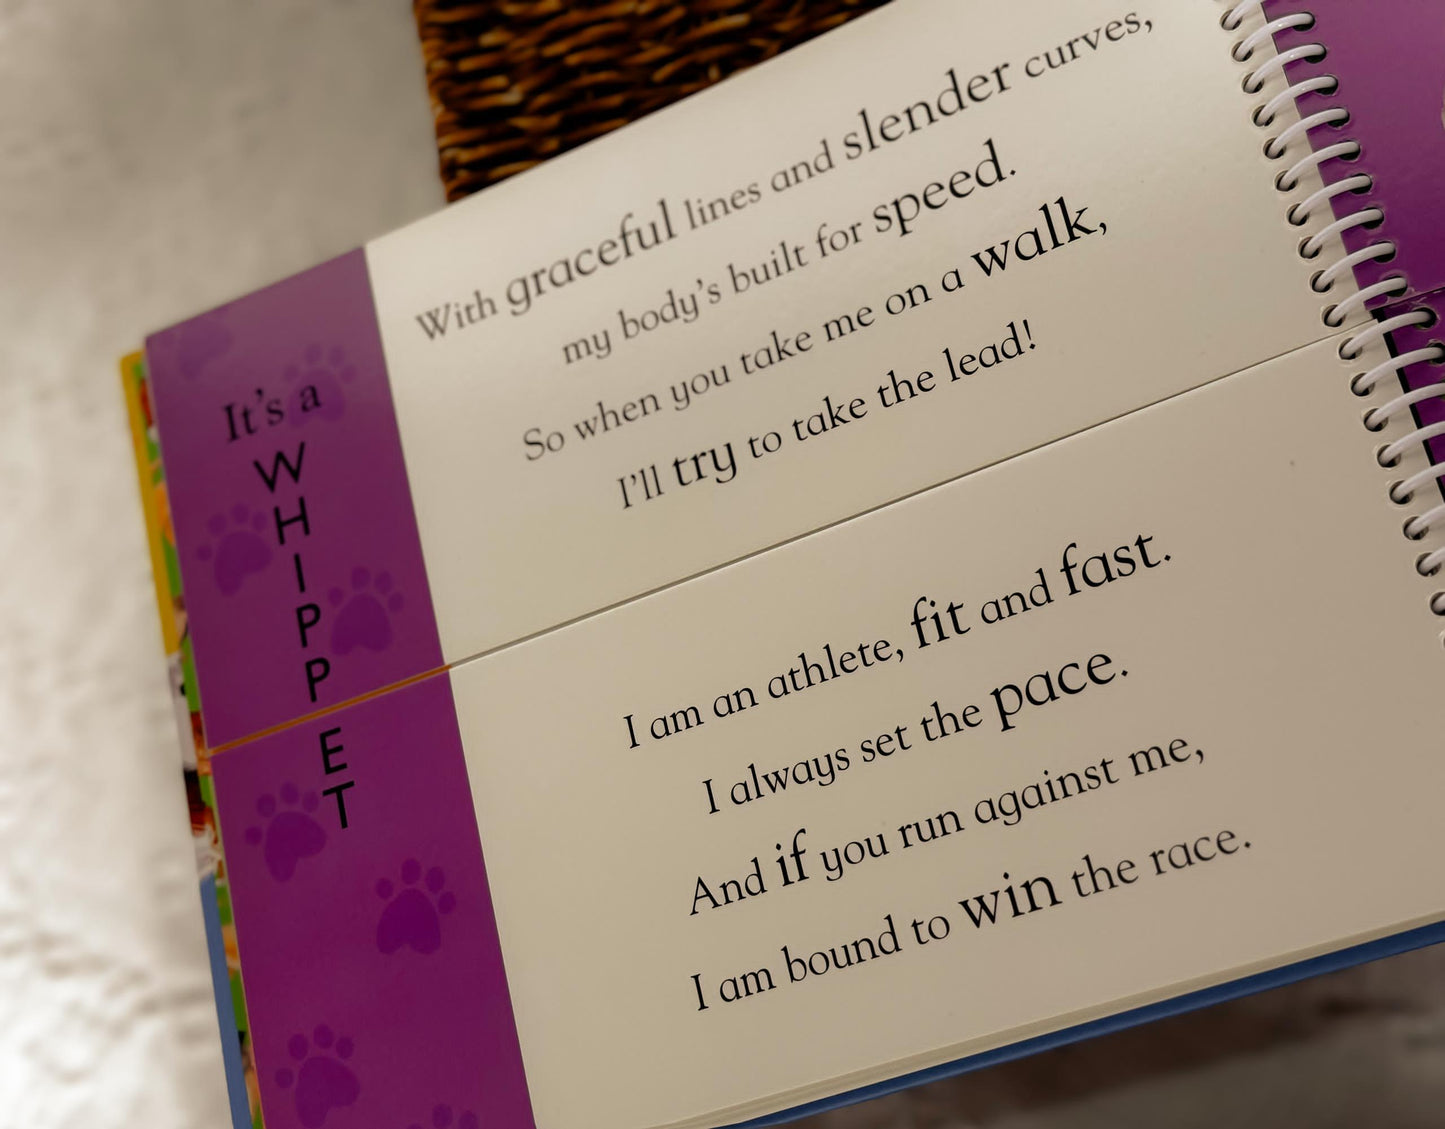 It's a
WHIPPET
With graceful lines and slender curves,
my body's built for speed.
So when you take me on a walk,
I'll try to take the lead!
I am an athlete, fit and fast.
I always set the pace.
And if you run against me,
I am bound to win the race.